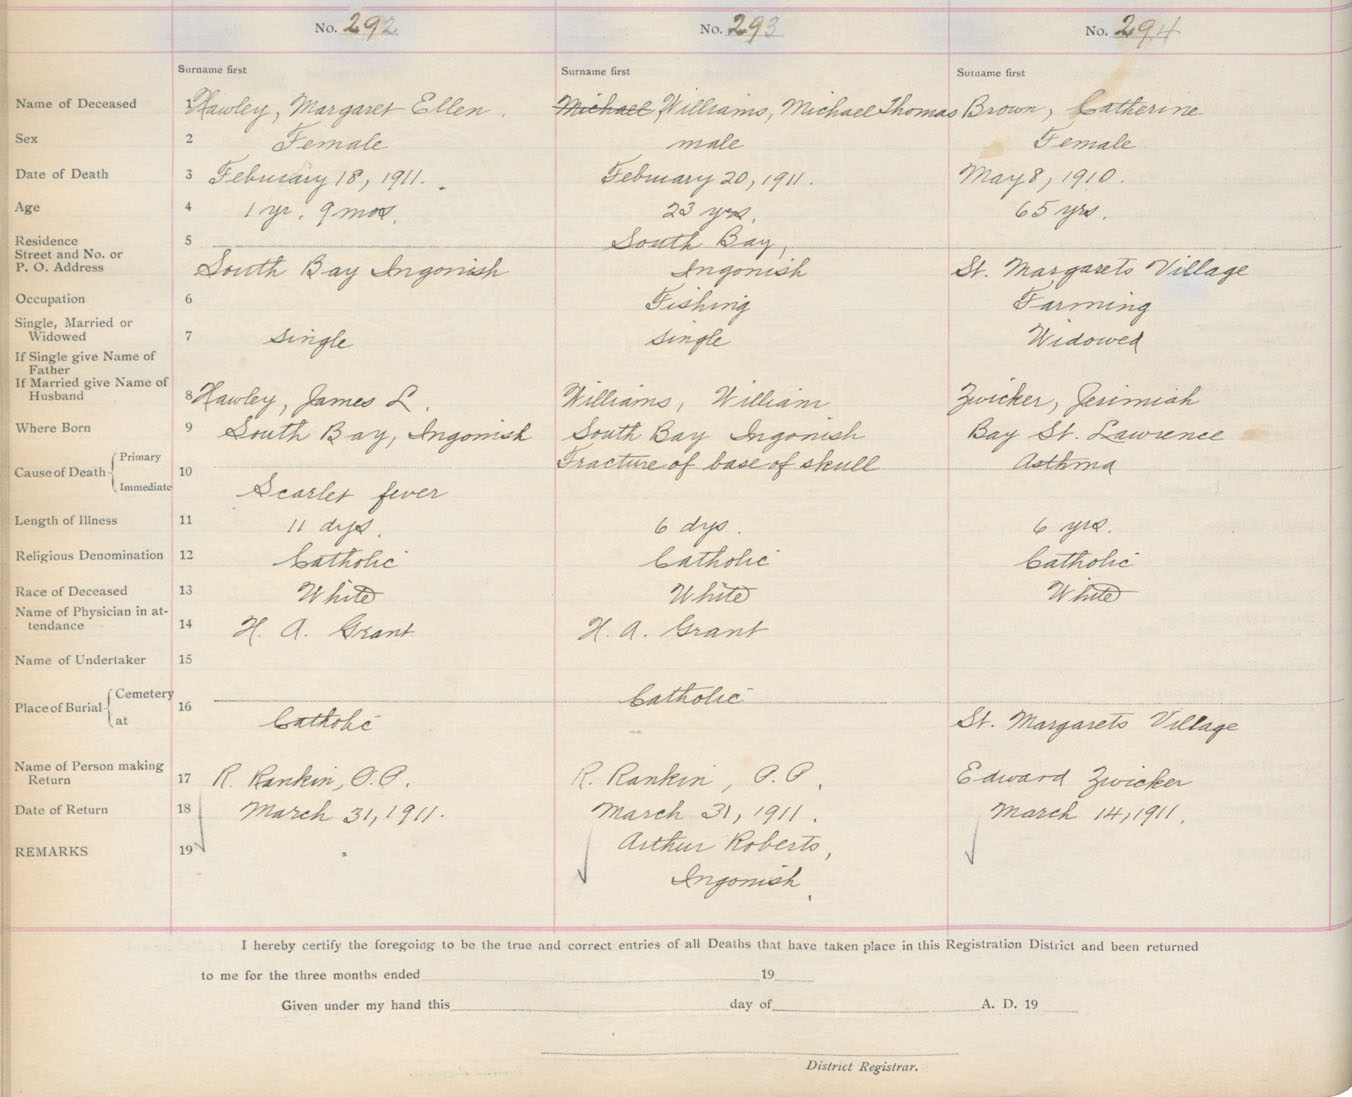 No. 292 No. 293 No. 294
Surname first Surname first Surname first
Name of Deceased 1 Hawley, Margaret Ellen. Michael Williams, Michael Thomas Brown, Catherine
Sex 2 Female male Female
Date of Death 3 February 18, 1911. February 20, 1911. May 8, 1910.
Age 4 1 yr. 9 mos. 23 yrs. 65 yrs.
Residence 5 South Bay,
Street and No. or
P. O. Address South Bay Ingonish Ingonish St. Margarets Village
Occupation 6 Fishing Farming
Single, Married or
Widowed 7 single single Widowed
If Single give Name of
Father
If Married give Name of
Husband 8 Hawley, James L. Williams, William Zwicker, Jerimiah
Where Born 9 South Bay, Ingonish South Bay Ingonish Bay St. Lawrence
Cause of Death Primary 10 Fracture of base of skull Asthma
Immediate Scarlet fever
Length of Illness 11 11 dys. 6 dys. 6 yrs.
Religious Denomination 12 Catholic Catholic Catholic
Race of Deceased 13 White White White
Name of Physician in at-
tendance 14 H. A. Grant H. A. Grant
Name of Undertaker 15
Place of Burial Cemetery 16 Catholic
at Catholic St. Margarets Village
Name of Person making
Return 17 R. Rankin, P.P. R. Rankin, P.P. Edward Zwicker
Date of Return 18 March 31, 1911. March 31, 1911. March 14, 1911.
REMARKS 19 Arthur Roberts,
Ingonish.
I hereby certify the foregoing to be the true and correct entries of all Deaths that have taken place in this Registration District and been returned
to me for the three months ended 19
Given under my hand this day of A. D. 19
District Registrar.